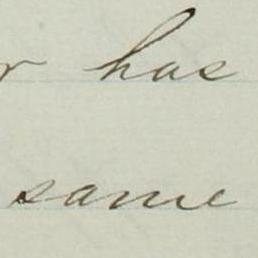 r has
same